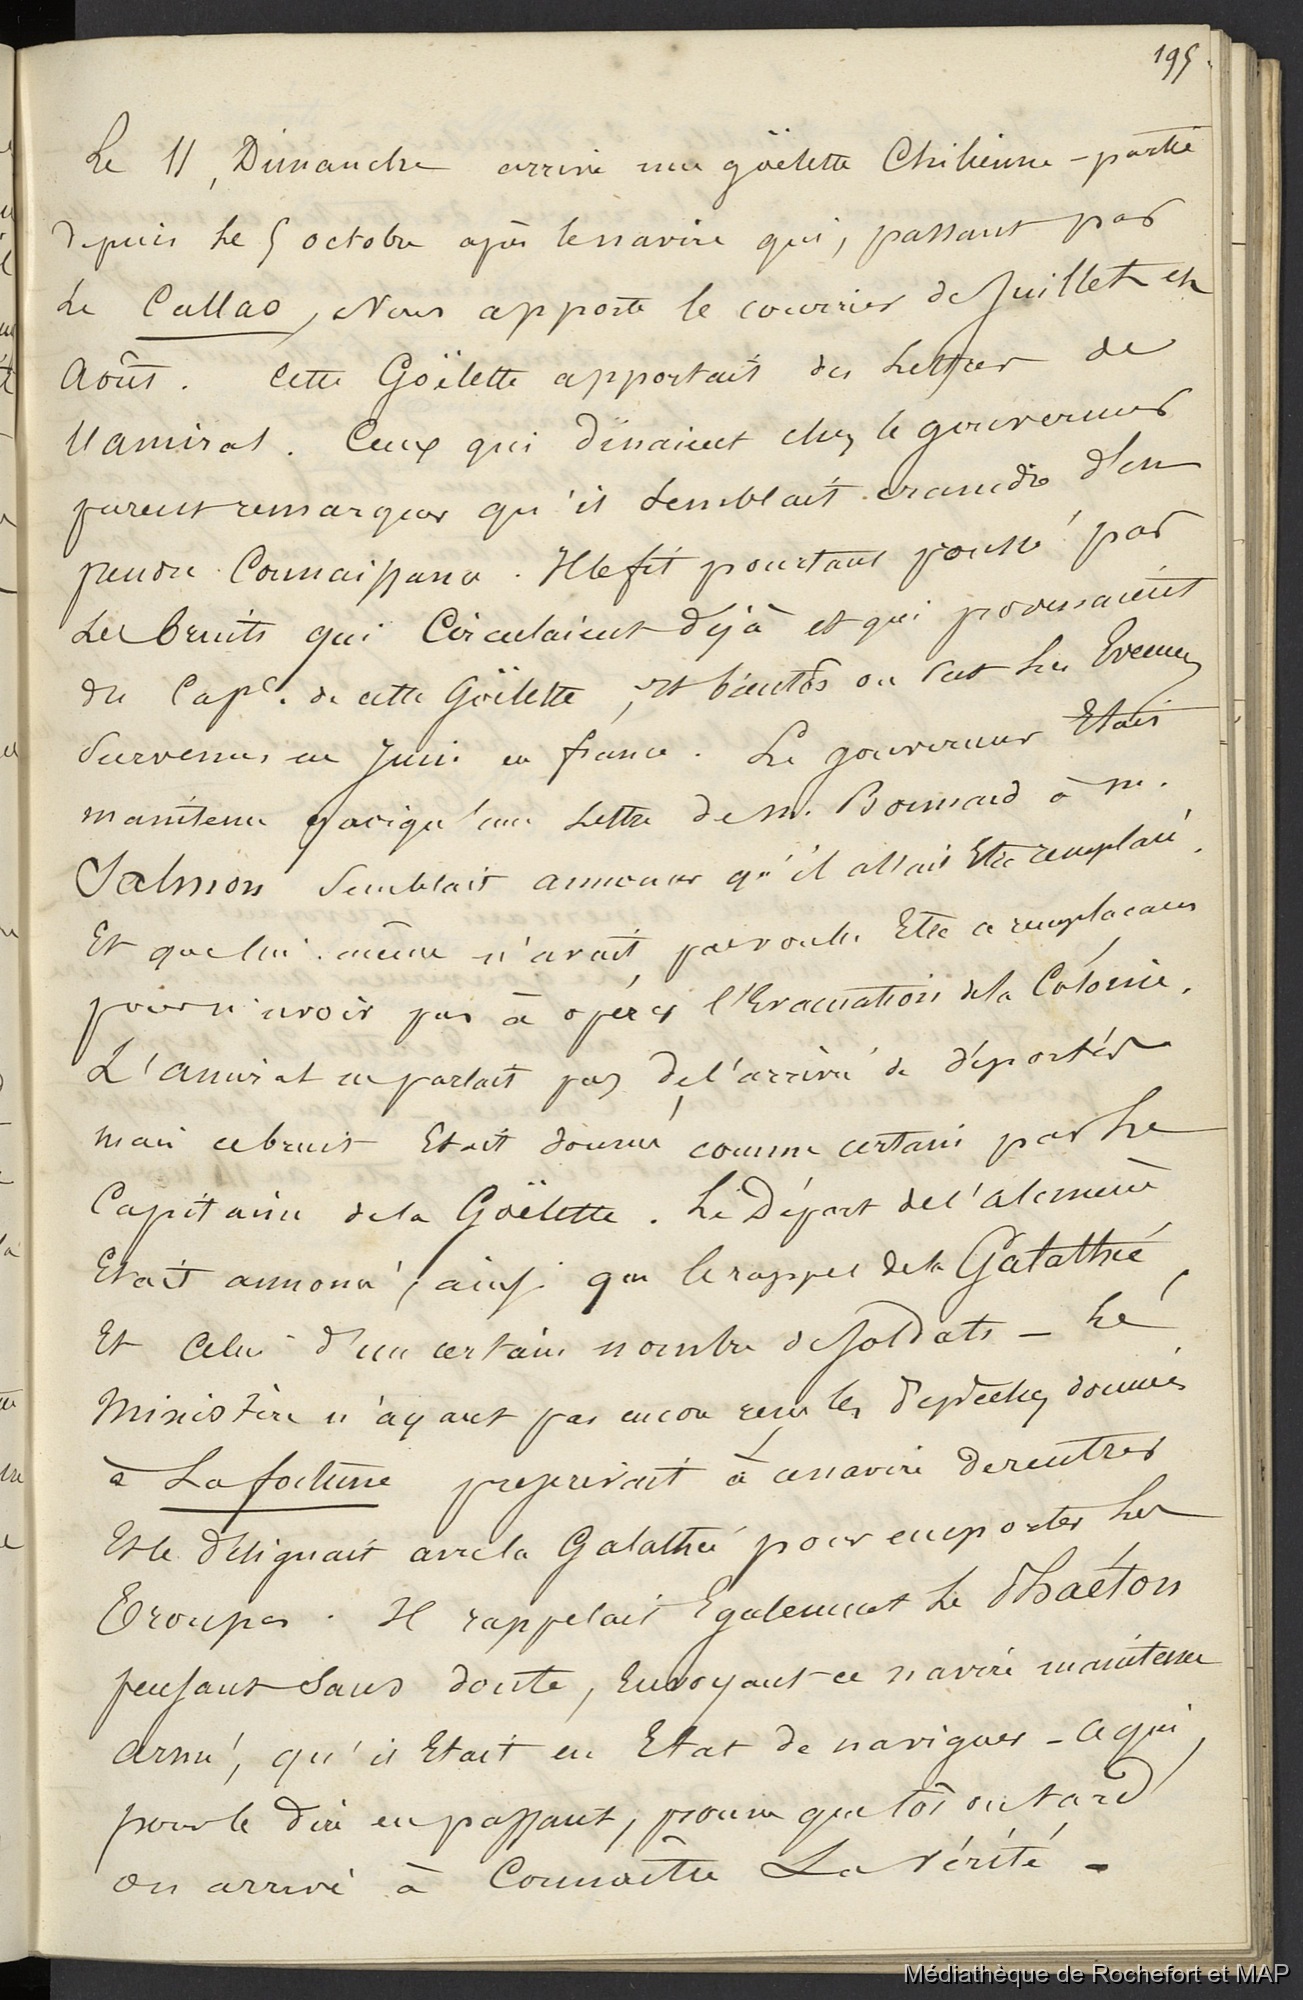 195.
Le 11, Dimanche arrive une goëlette Chilienne – partie
depuis le 5 octobre après le navire qui, passant par
Le Callao, Nous apporte le courrier de Juillet et
Août. Cette Goëlette apportait des Lettres de
l'amiral. Ceux qui dinaient chez le gouverneur
purent remarquer qu'il semblait craindre d'en
prendre Connaissance. Il le fit pourtant poussé par
Les bruits qui Circulaient déjà et qui provenaient
du Cap.e de cette Goëlette, Et bientôt on sut les Evenem
survenus en Juin en france. Le gouverneur Etait
maintenu quoiqu'une Lettre de M. Bonnard à M.
Salmon semblait annoncer qu'il allait Etre remplacé.
Et que lui-même n'avait pas voulu Etre ce remplacant
pour n'avoir pas à opérer l'Evacuation de la Colonie.
L'amiral ne parlait pas de l'arrivé de déportés
mais ce bruit Etait donné comme certain par Le
Capitaine de la Goëlette. Le Départ de l'alcmène
Etait annoncé, ainsi que le rappel de la Galathée,
Et Celui d'un certain nombre de Soldats – Le
Ministère n'ayant pas encore reçu les dépêches données
à La fortune prescrivait à ce navire de rentrer
Et le désignait avec la Galathée pour emporter Les
Troupes. Il rappelait Egalement Le Phaéton
pensant sans doute, En voyant ce navire maintenu
armé, qu'il Etait en Etat de naviguer – ce qui,
pour le dire en passant, prouve que tôt ou tard
on arrive à Connaître La Vérité –
Médiathèque de Rochefort et MAP